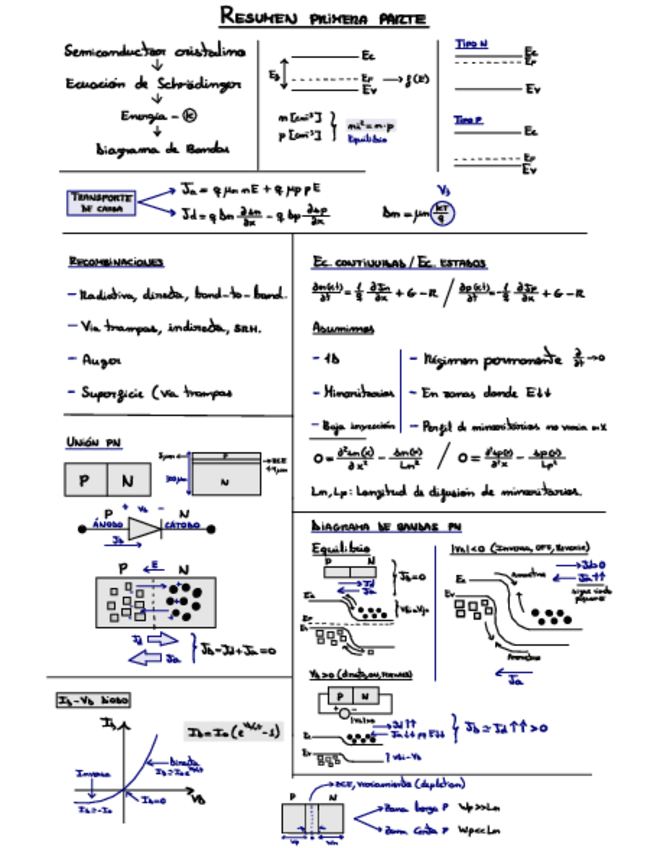 RESUMEN PRIMERA PARTE
Semiconductor cristalino
↓
Ecuación de Schrödinger
↓
Energía - k
↓
Diagrama de Bandas
Ec
Eg
EF → f(E)
Ev
n [cm⁻³]
p [cm⁻³]
ni² = n·p
Equilibrio
TIPO N
Ec
EF
Ev
TIPO P
Ec
EF
Ev
TRANSPORTE DE CARGA
Ja = q μn n E + q μp p E
Jd = q Dn ∂Δn/∂x - q Dp ∂Δp/∂x
Dn = μn kT/q
RECOMBINACIONES
- Radiativa, directa, band-to-band.
- Via trampas, indirecta, SRH.
- Auger
- Superficie (Via trampas
EC. CONTINUIDAD / EC. ESTADOS
∂n(x,t)/∂t = 1/q ∂Jn/∂x + G - R / ∂p(x,t)/∂t = -1/q ∂Jp/∂x + G - R
Asumimos
- 1D
- Minoritarios
- Baja inyección
- Régimen permanente ∂/∂t → 0
- En zonas donde E↓↓
- Perfil de minoritarios no varia
0 = ∂²Δn(x)/∂x² - Δn(x)/Ln² / 0 = ∂²Δp(x)/∂²x - Δp(x)/Lp²
Ln, Lp: Longitud de difusión de minoritarios.
UNIÓN PN
P N
300μm
P
N
P + VD - N
ÁNODO CÁTODO
JD
P E N
Jd
Ja
JD = Jd + Ja = 0
DIAGRAMA DE BANDAS PN
Equilibrio
P N
Jd
Ja
JD = 0
Ec
EF
Ev
|VD| < 0 (Inversa, OFF, Reverse)
Jd → 0
Ja ↑↑
Ec
Ev
Arrastre
Arrastre
Ja
VD > 0
P N
+ -
Jd ↑↑
JD ≃ Jd ↑↑ > 0
Ec
Ev
Vbi - VD
ID - VD DIODO
ID
ID = I0 (e -1)
Directa
Inversa
ID ≃ -I0
ID = 0
VD
ZCE, vaciamiento (depletion)
P N
Wp Wn
Zona larga P Wp >> Ln
Zona corta P Wp << Ln